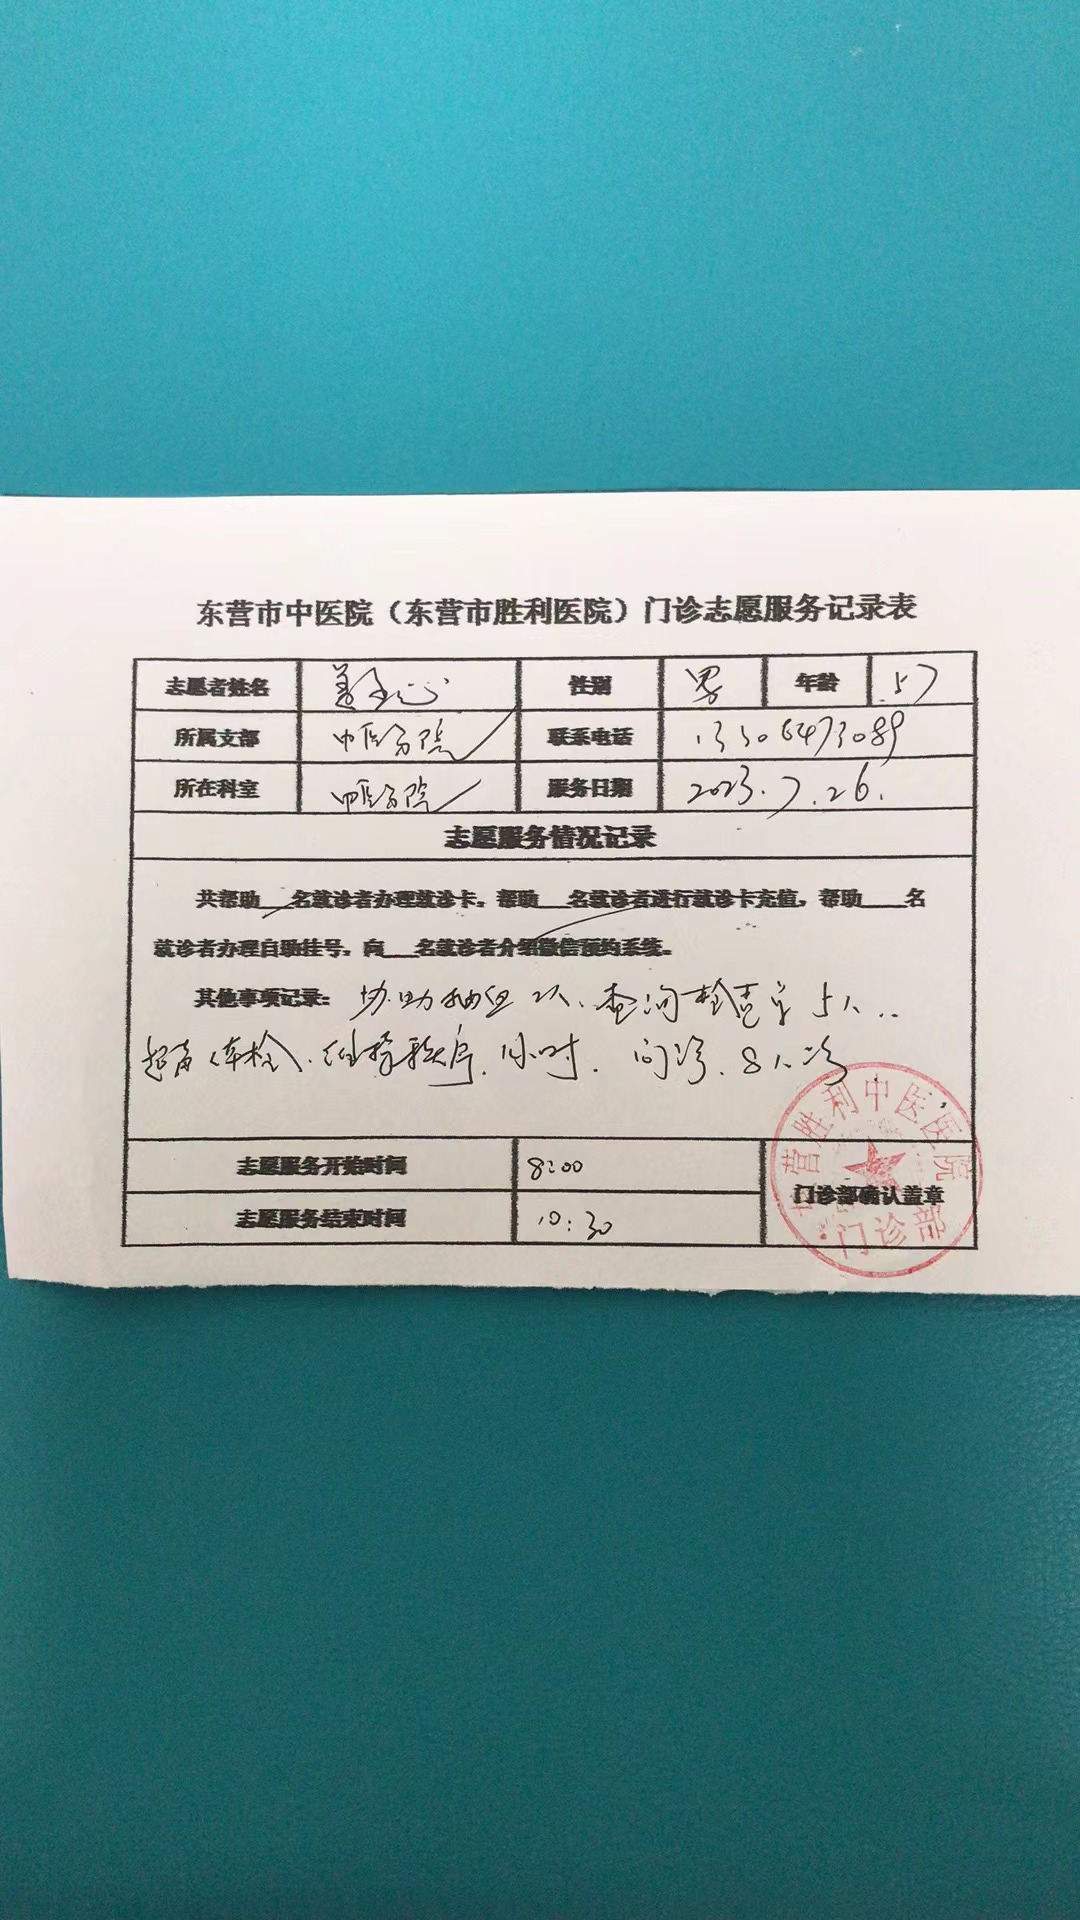 东营市中医院（东营市胜利医院）门诊志愿服务记录表
志愿者姓名 性别 男 年龄 57
所属支部 中医分院 联系电话 13306473089
所在科室 中医分院 服务日期 2023.7.26.
志愿服务情况记录
共帮助___名就诊者办理就诊卡，帮助___名就诊者进行就诊卡充值，帮助____名
就诊者办理自助挂号，向___名就诊者介绍微信预约系统。
其他事项记录：协助抽血2人、查询检查室5人..
超声体检、维持秩序.1小时. 问诊.8人次
志愿服务开始时间 8:00
志愿服务结束时间 10:30
门诊部确认盖章
营胜利中医医院
门诊部